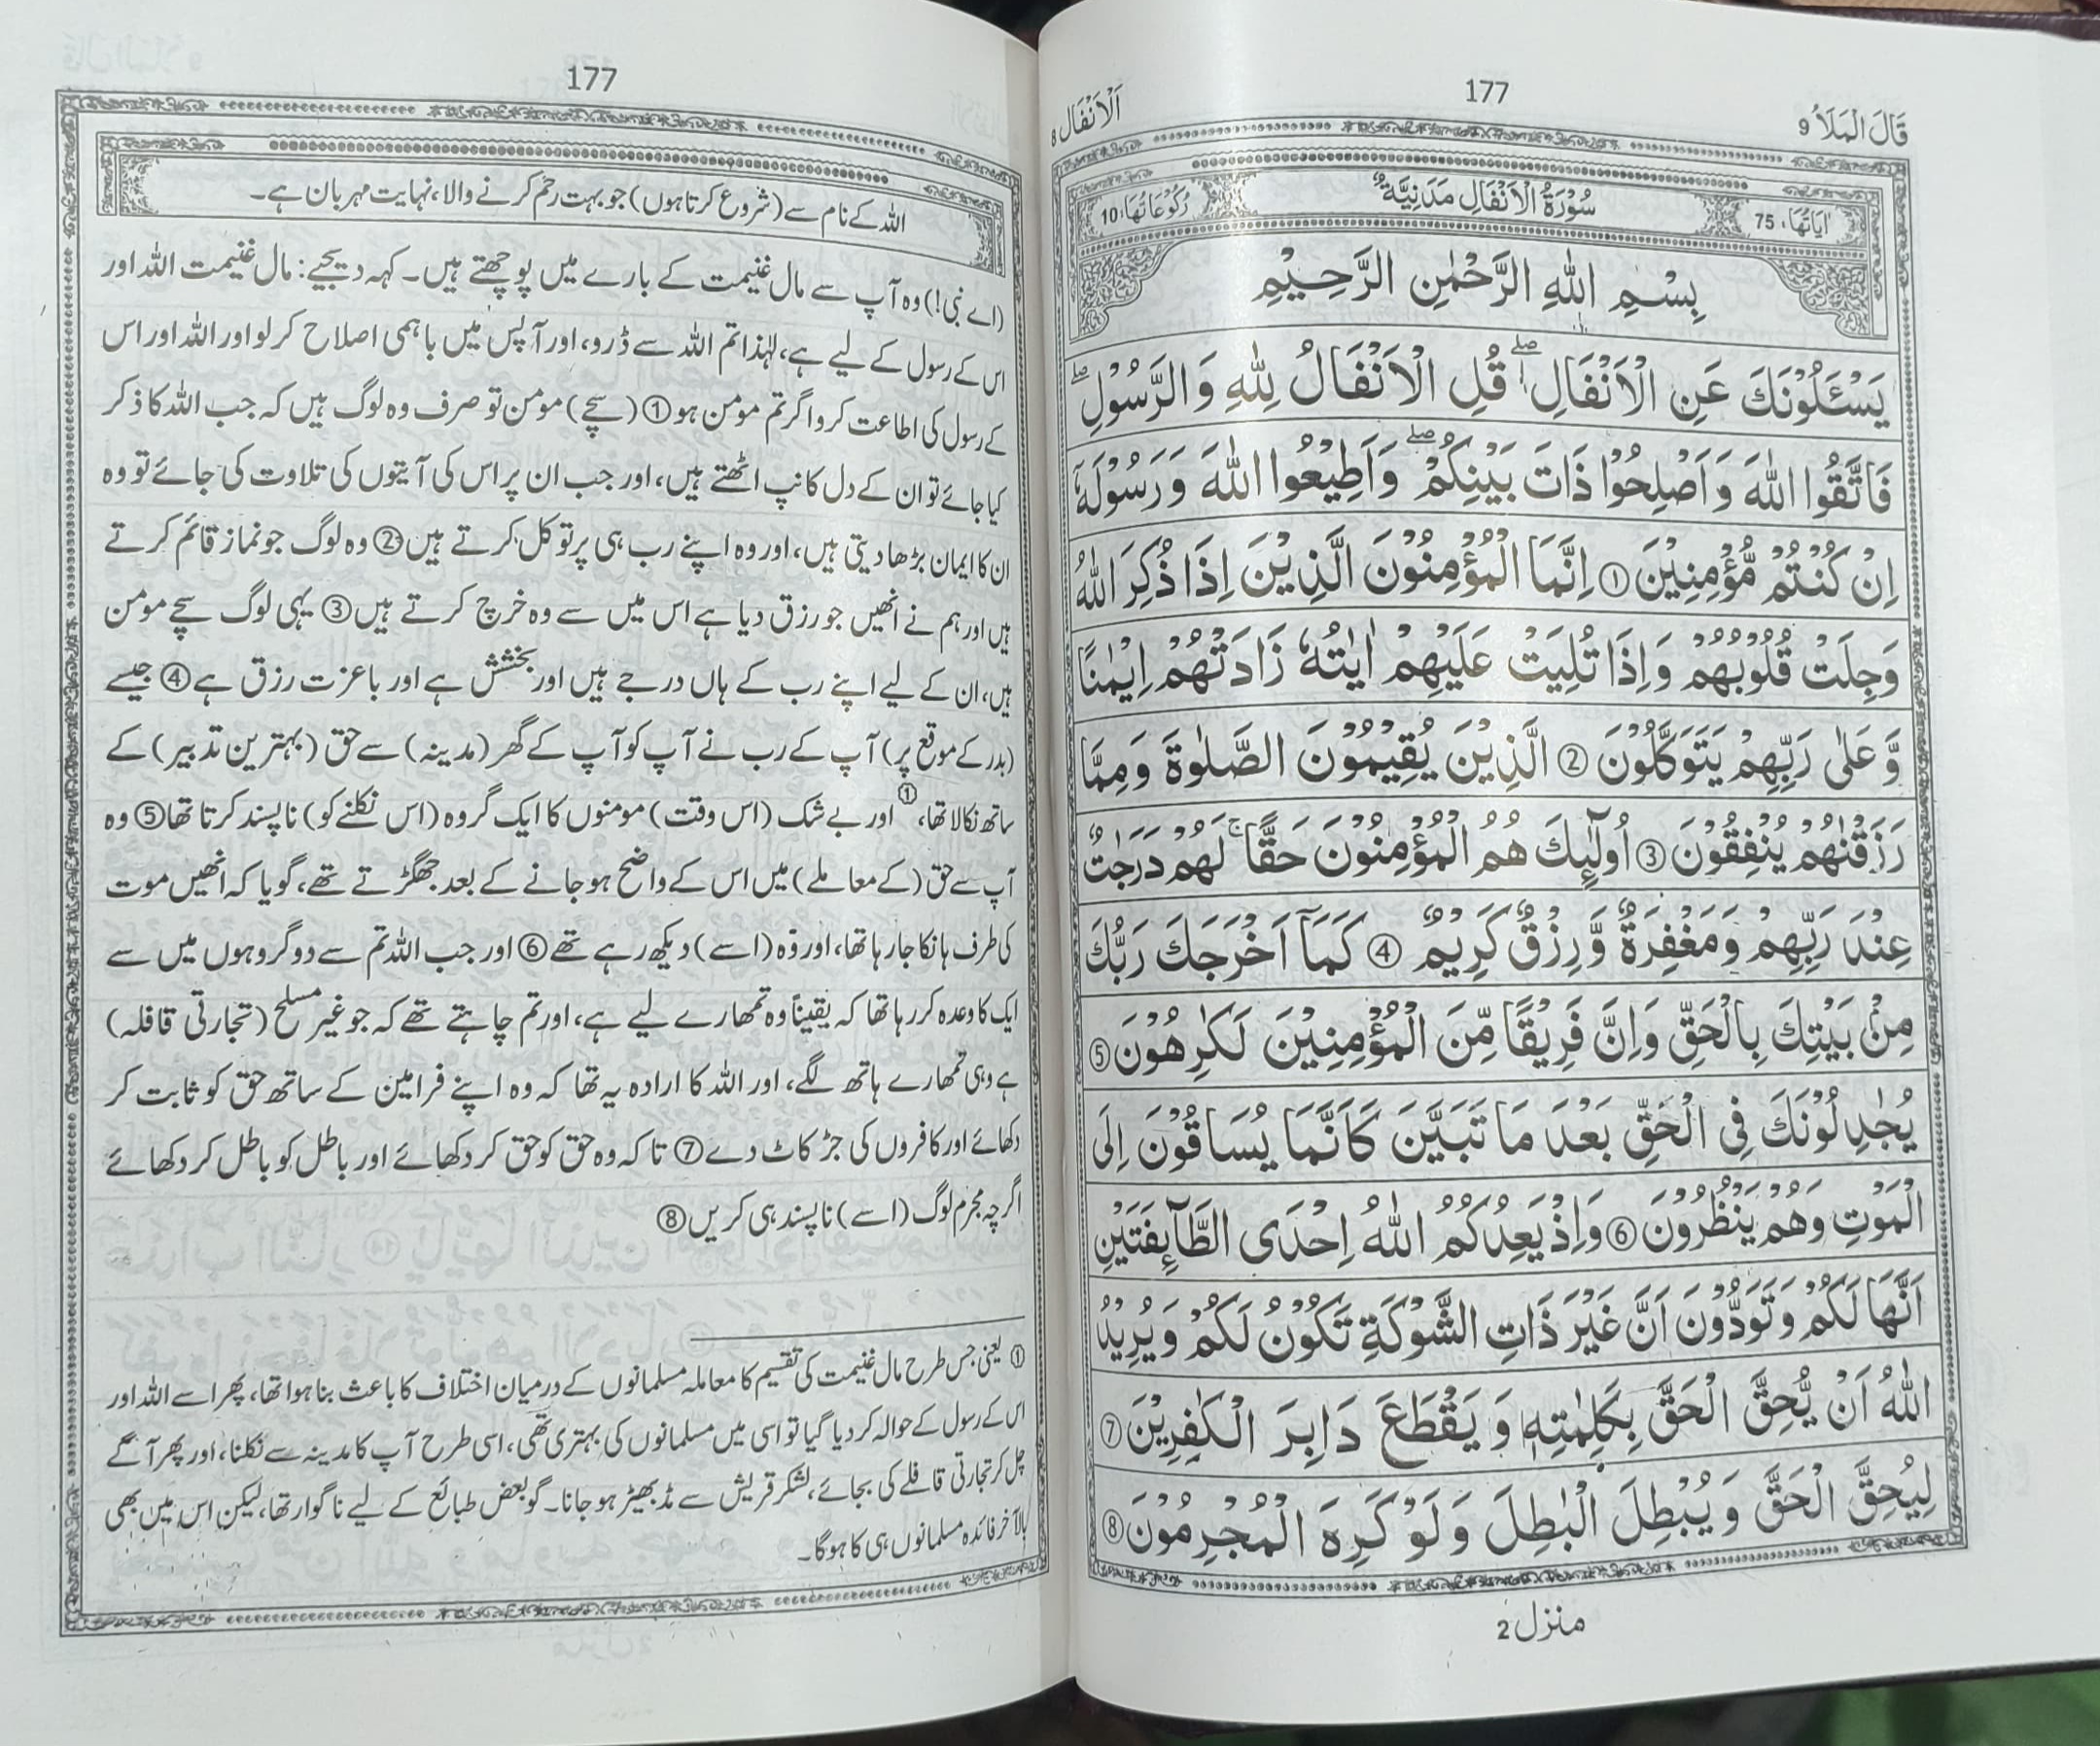 قَالَ الْمَلَاُ 9
177
اَلْاَنْفَال 8
اٰيَاتُهَا، 75
سُوْرَةُ الْاَنْفَالِ مَدَنِيَّةٌ
رُكُوْعَاتُهَا، 10
بِسْمِ اللّٰهِ الرَّحْمٰنِ الرَّحِيْمِ
يَسْـَٔلُوْنَكَ عَنِ الْاَنْفَالِ ۖ قُلِ الْاَنْفَالُ لِلّٰهِ وَالرَّسُوْلِ ۖ
فَاتَّقُوا اللّٰهَ وَاَصْلِحُوْا ذَاتَ بَيْنِكُمْ ۖ وَاَطِيْعُوا اللّٰهَ وَرَسُوْلَهٗٓ
اِنْ كُنْتُمْ مُّؤْمِنِيْنَ ① اِنَّمَا الْمُؤْمِنُوْنَ الَّذِيْنَ اِذَا ذُكِرَ اللّٰهُ
وَجِلَتْ قُلُوْبُهُمْ وَاِذَا تُلِيَتْ عَلَيْهِمْ اٰيٰتُهٗ زَادَتْهُمْ اِيْمٰنًا
وَّعَلٰى رَبِّهِمْ يَتَوَكَّلُوْنَ ② الَّذِيْنَ يُقِيْمُوْنَ الصَّلٰوةَ وَمِمَّا
رَزَقْنٰهُمْ يُنْفِقُوْنَ ③ اُولٰٓئِكَ هُمُ الْمُؤْمِنُوْنَ حَقًّا ۚ لَهُمْ دَرَجٰتٌ
عِنْدَ رَبِّهِمْ وَمَغْفِرَةٌ وَّرِزْقٌ كَرِيْمٌ ④ كَمَآ اَخْرَجَكَ رَبُّكَ
مِنْۢ بَيْتِكَ بِالْحَقِّ وَاِنَّ فَرِيْقًا مِّنَ الْمُؤْمِنِيْنَ لَكٰرِهُوْنَ ⑤
يُجٰدِلُوْنَكَ فِى الْحَقِّ بَعْدَ مَا تَبَيَّنَ كَاَنَّمَا يُسَاقُوْنَ اِلَى
الْمَوْتِ وَهُمْ يَنْظُرُوْنَ ⑥ وَاِذْ يَعِدُكُمُ اللّٰهُ اِحْدَى الطَّآئِفَتَيْنِ
اَنَّهَا لَكُمْ وَتَوَدُّوْنَ اَنَّ غَيْرَ ذَاتِ الشَّوْكَةِ تَكُوْنُ لَكُمْ وَيُرِيْدُ
اللّٰهُ اَنْ يُّحِقَّ الْحَقَّ بِكَلِمٰتِهٖ وَيَقْطَعَ دَابِرَ الْكٰفِرِيْنَ ⑦
لِيُحِقَّ الْحَقَّ وَيُبْطِلَ الْبٰطِلَ وَلَوْ كَرِهَ الْمُجْرِمُوْنَ ⑧
منزل 2
177
اللہ کے نام سے (شروع کرتا ہوں) جو بہت رحم کرنے والا، نہایت مہربان ہے۔
(اے نبی!) وہ آپ سے مال غنیمت کے بارے میں پوچھتے ہیں۔ کہہ دیجیے: مال غنیمت اللہ اور
اس کے رسول کے لیے ہے، لہٰذا تم اللہ سے ڈرو، اور آپس میں باہمی اصلاح کر لو اور اللہ اور اس
کے رسول کی اطاعت کرو اگر تم مومن ہو ① (سچے) مومن تو صرف وہ لوگ ہیں کہ جب اللہ کا ذکر
کیا جائے تو ان کے دل کانپ اٹھتے ہیں، اور جب ان پر اس کی آیتوں کی تلاوت کی جائے تو وہ
ان کا ایمان بڑھا دیتی ہیں، اور وہ اپنے رب ہی پر توکل کرتے ہیں ② وہ لوگ جو نماز قائم کرتے
ہیں اور ہم نے انھیں جو رزق دیا ہے اس میں سے وہ خرچ کرتے ہیں ③ یہی لوگ سچے مومن
ہیں، ان کے لیے اپنے رب کے ہاں درجے ہیں اور بخشش ہے اور باعزت رزق ہے ④ جیسے
(بدر کے موقع پر) آپ کے رب نے آپ کو آپ کے گھر (مدینہ) سے حق (بہترین تدبیر) کے
ساتھ نکالا تھا، ① اور بے شک (اس وقت) مومنوں کا ایک گروہ (اس نکلنے کو) ناپسند کرتا تھا ⑤ وہ
آپ سے حق (کے معاملے) میں اس کے واضح ہو جانے کے بعد جھگڑتے تھے، گویا کہ انھیں موت
کی طرف ہانکا جا رہا تھا، اور وہ (اسے) دیکھ رہے تھے ⑥ اور جب اللہ تم سے دو گروہوں میں سے
ایک کا وعدہ کر رہا تھا کہ یقیناً وہ تمھارے لیے ہے، اور تم چاہتے تھے کہ جو غیر مسلح (تجارتی قافلہ)
ہے وہی تمھارے ہاتھ لگے، اور اللہ کا ارادہ یہ تھا کہ وہ اپنے فرامین کے ساتھ حق کو ثابت کر
دکھائے اور کافروں کی جڑ کاٹ دے ⑦ تاکہ وہ حق کو حق کر دکھائے اور باطل کو باطل کر دکھائے
اگرچہ مجرم لوگ (اسے) ناپسند ہی کریں ⑧
① یعنی جس طرح مال غنیمت کی تقسیم کا معاملہ مسلمانوں کے درمیان اختلاف کا باعث بنا ہوا تھا، پھر اسے اللہ اور
اس کے رسول کے حوالہ کر دیا گیا تو اسی میں مسلمانوں کی بہتری تھی، اسی طرح آپ کا مدینہ سے نکلنا، اور پھر آگے
چل کر تجارتی قافلے کی بجائے، لشکر قریش سے مڈبھیڑ ہو جانا۔ گو بعض طبائع کے لیے ناگوار تھا، لیکن اس میں بھی
بالآخر فائدہ مسلمانوں ہی کا ہوگا۔